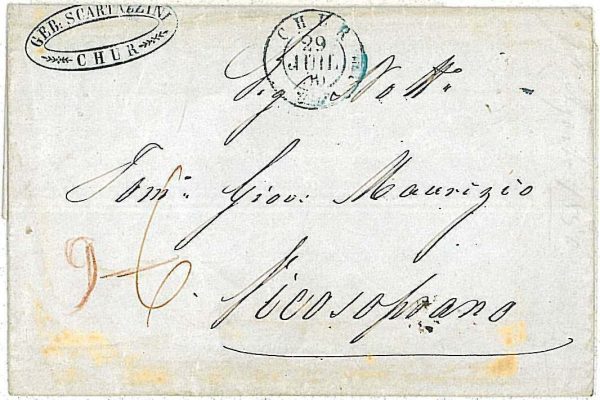 GEB: SCARTAZZINI
CHUR
CHUR
29
JUIL
Sig. Nott.
Tom: Giov: Maurizio
9 6.
Vicosoprano